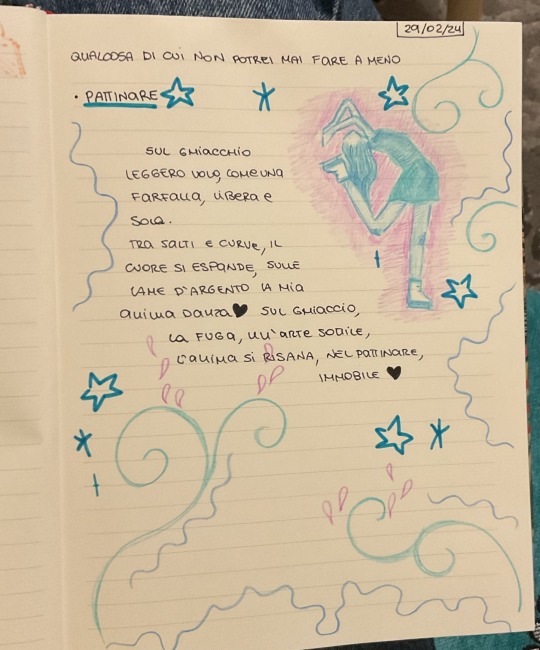 29/02/24
QUALCOSA DI CUI NON POTREI MAI FARE A MENO
• PATTINARE
SUL GHIACCHIO
LEGGERO VOLO, COME UNA
FARFALLA, LIBERA E
SOLA.
TRA SALTI E CURVE, IL
CUORE SI ESPANDE, SULLE
LAME D'ARGENTO LA MIA
ANIMA DANZA♥ SUL GHIACCIO,
LA FUGA, UN'ARTE SOTTILE,
L'ANIMA SI RISANA, NEL PATTINARE,
IMMOBILE ♥